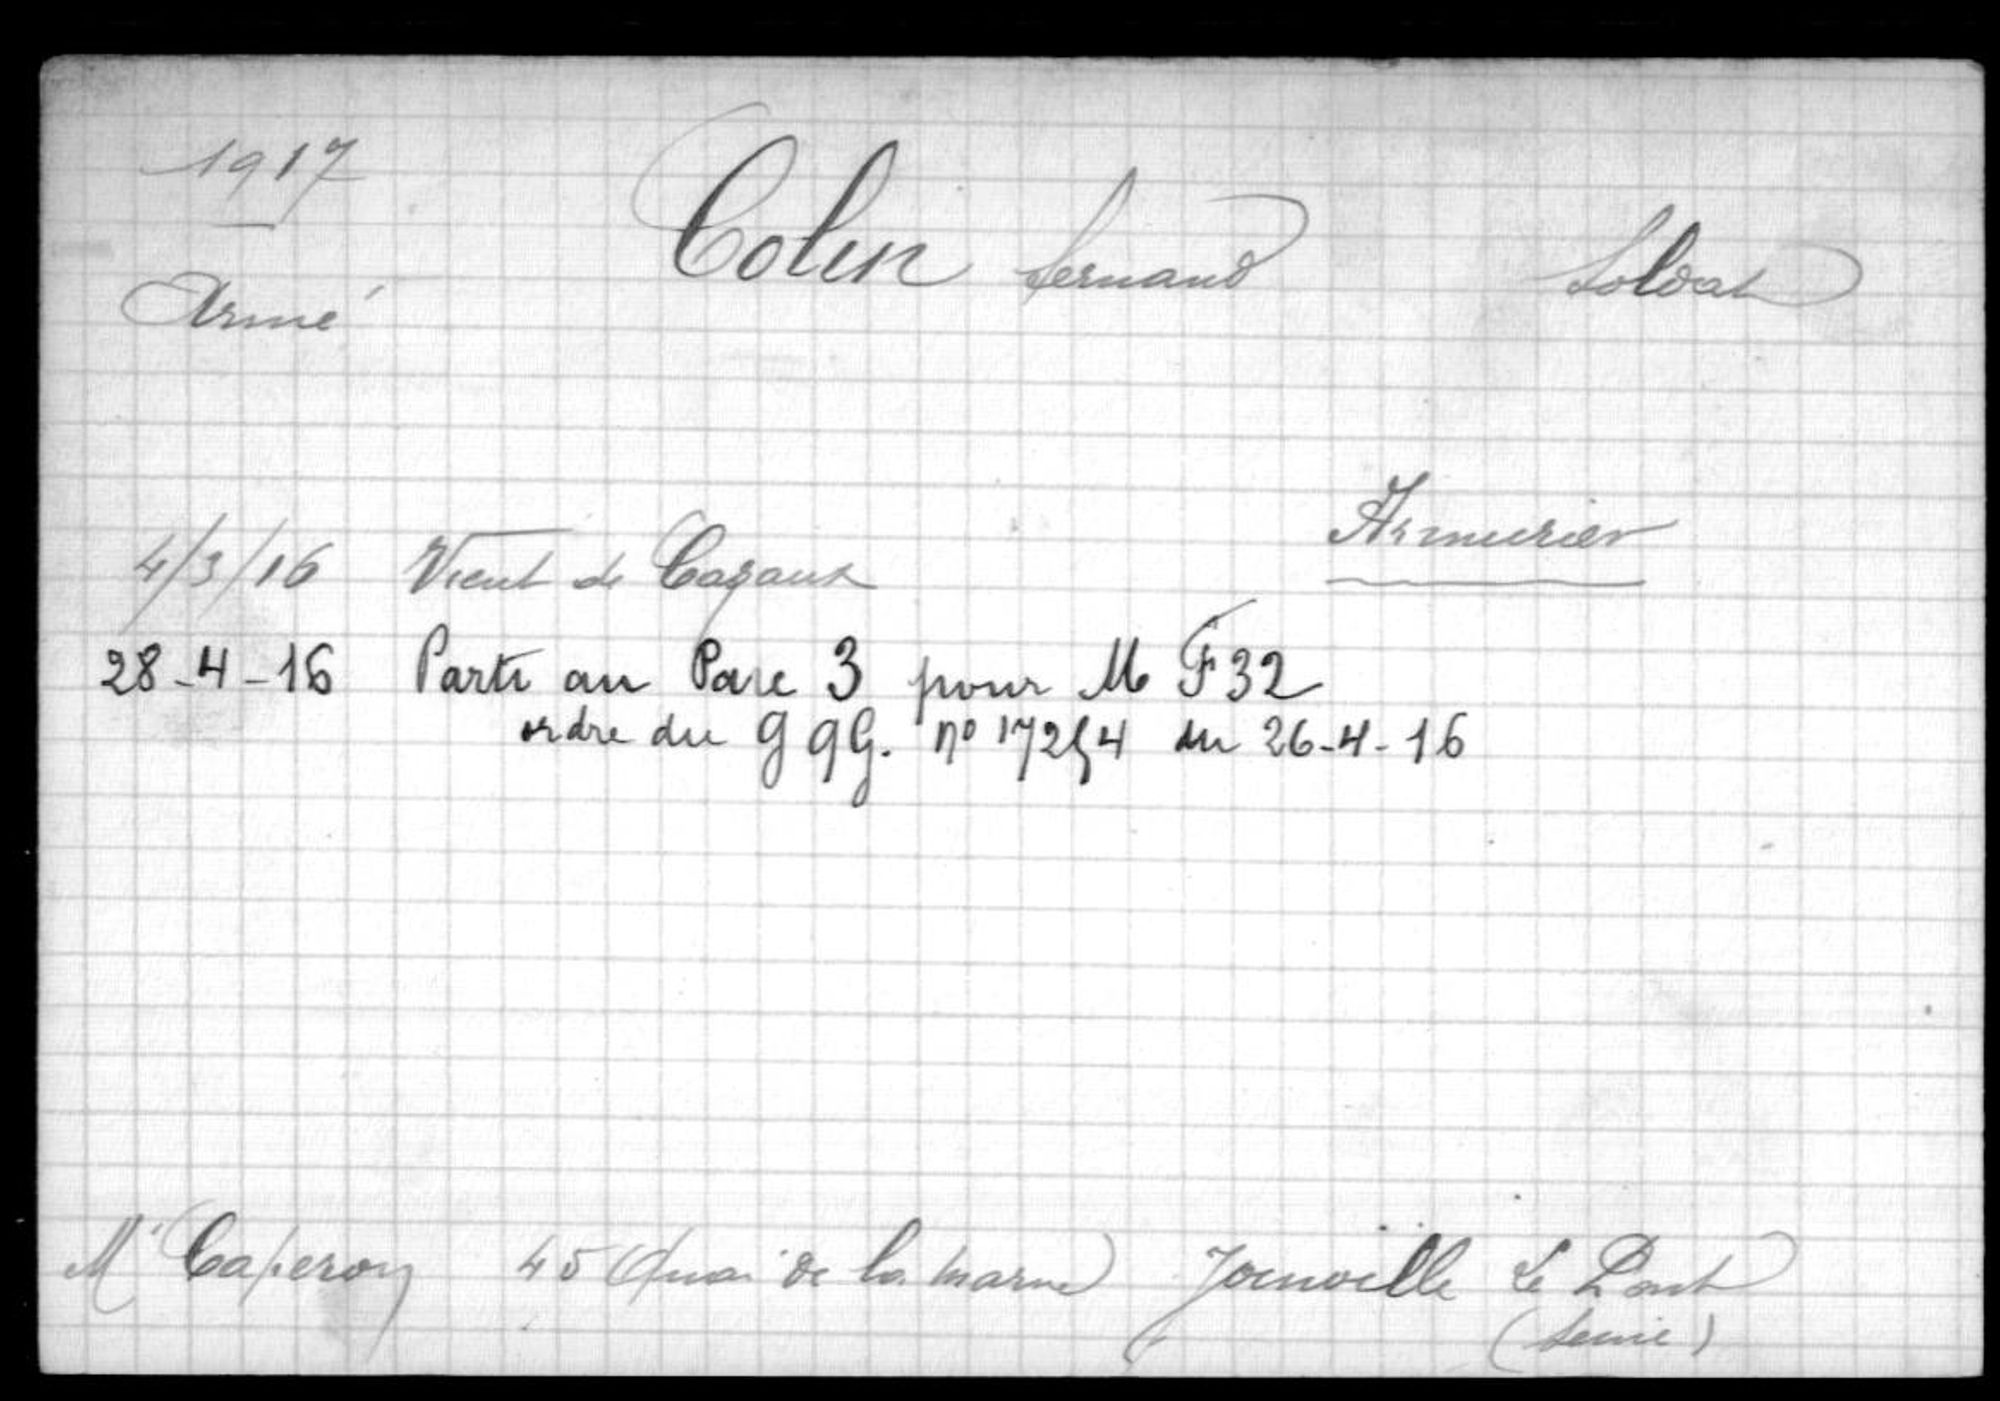 1917
Colin Fernand Soldat
Armé
Armurier
4/3/16 Vient de Cazaux
28-4-16 Parti au Parc 3 pour M F 32
ordre du G Q G. no 17254 du 26-4-16
Mr Caperon 45 Quai de la Marne Joinville Le Pont
(Seine)